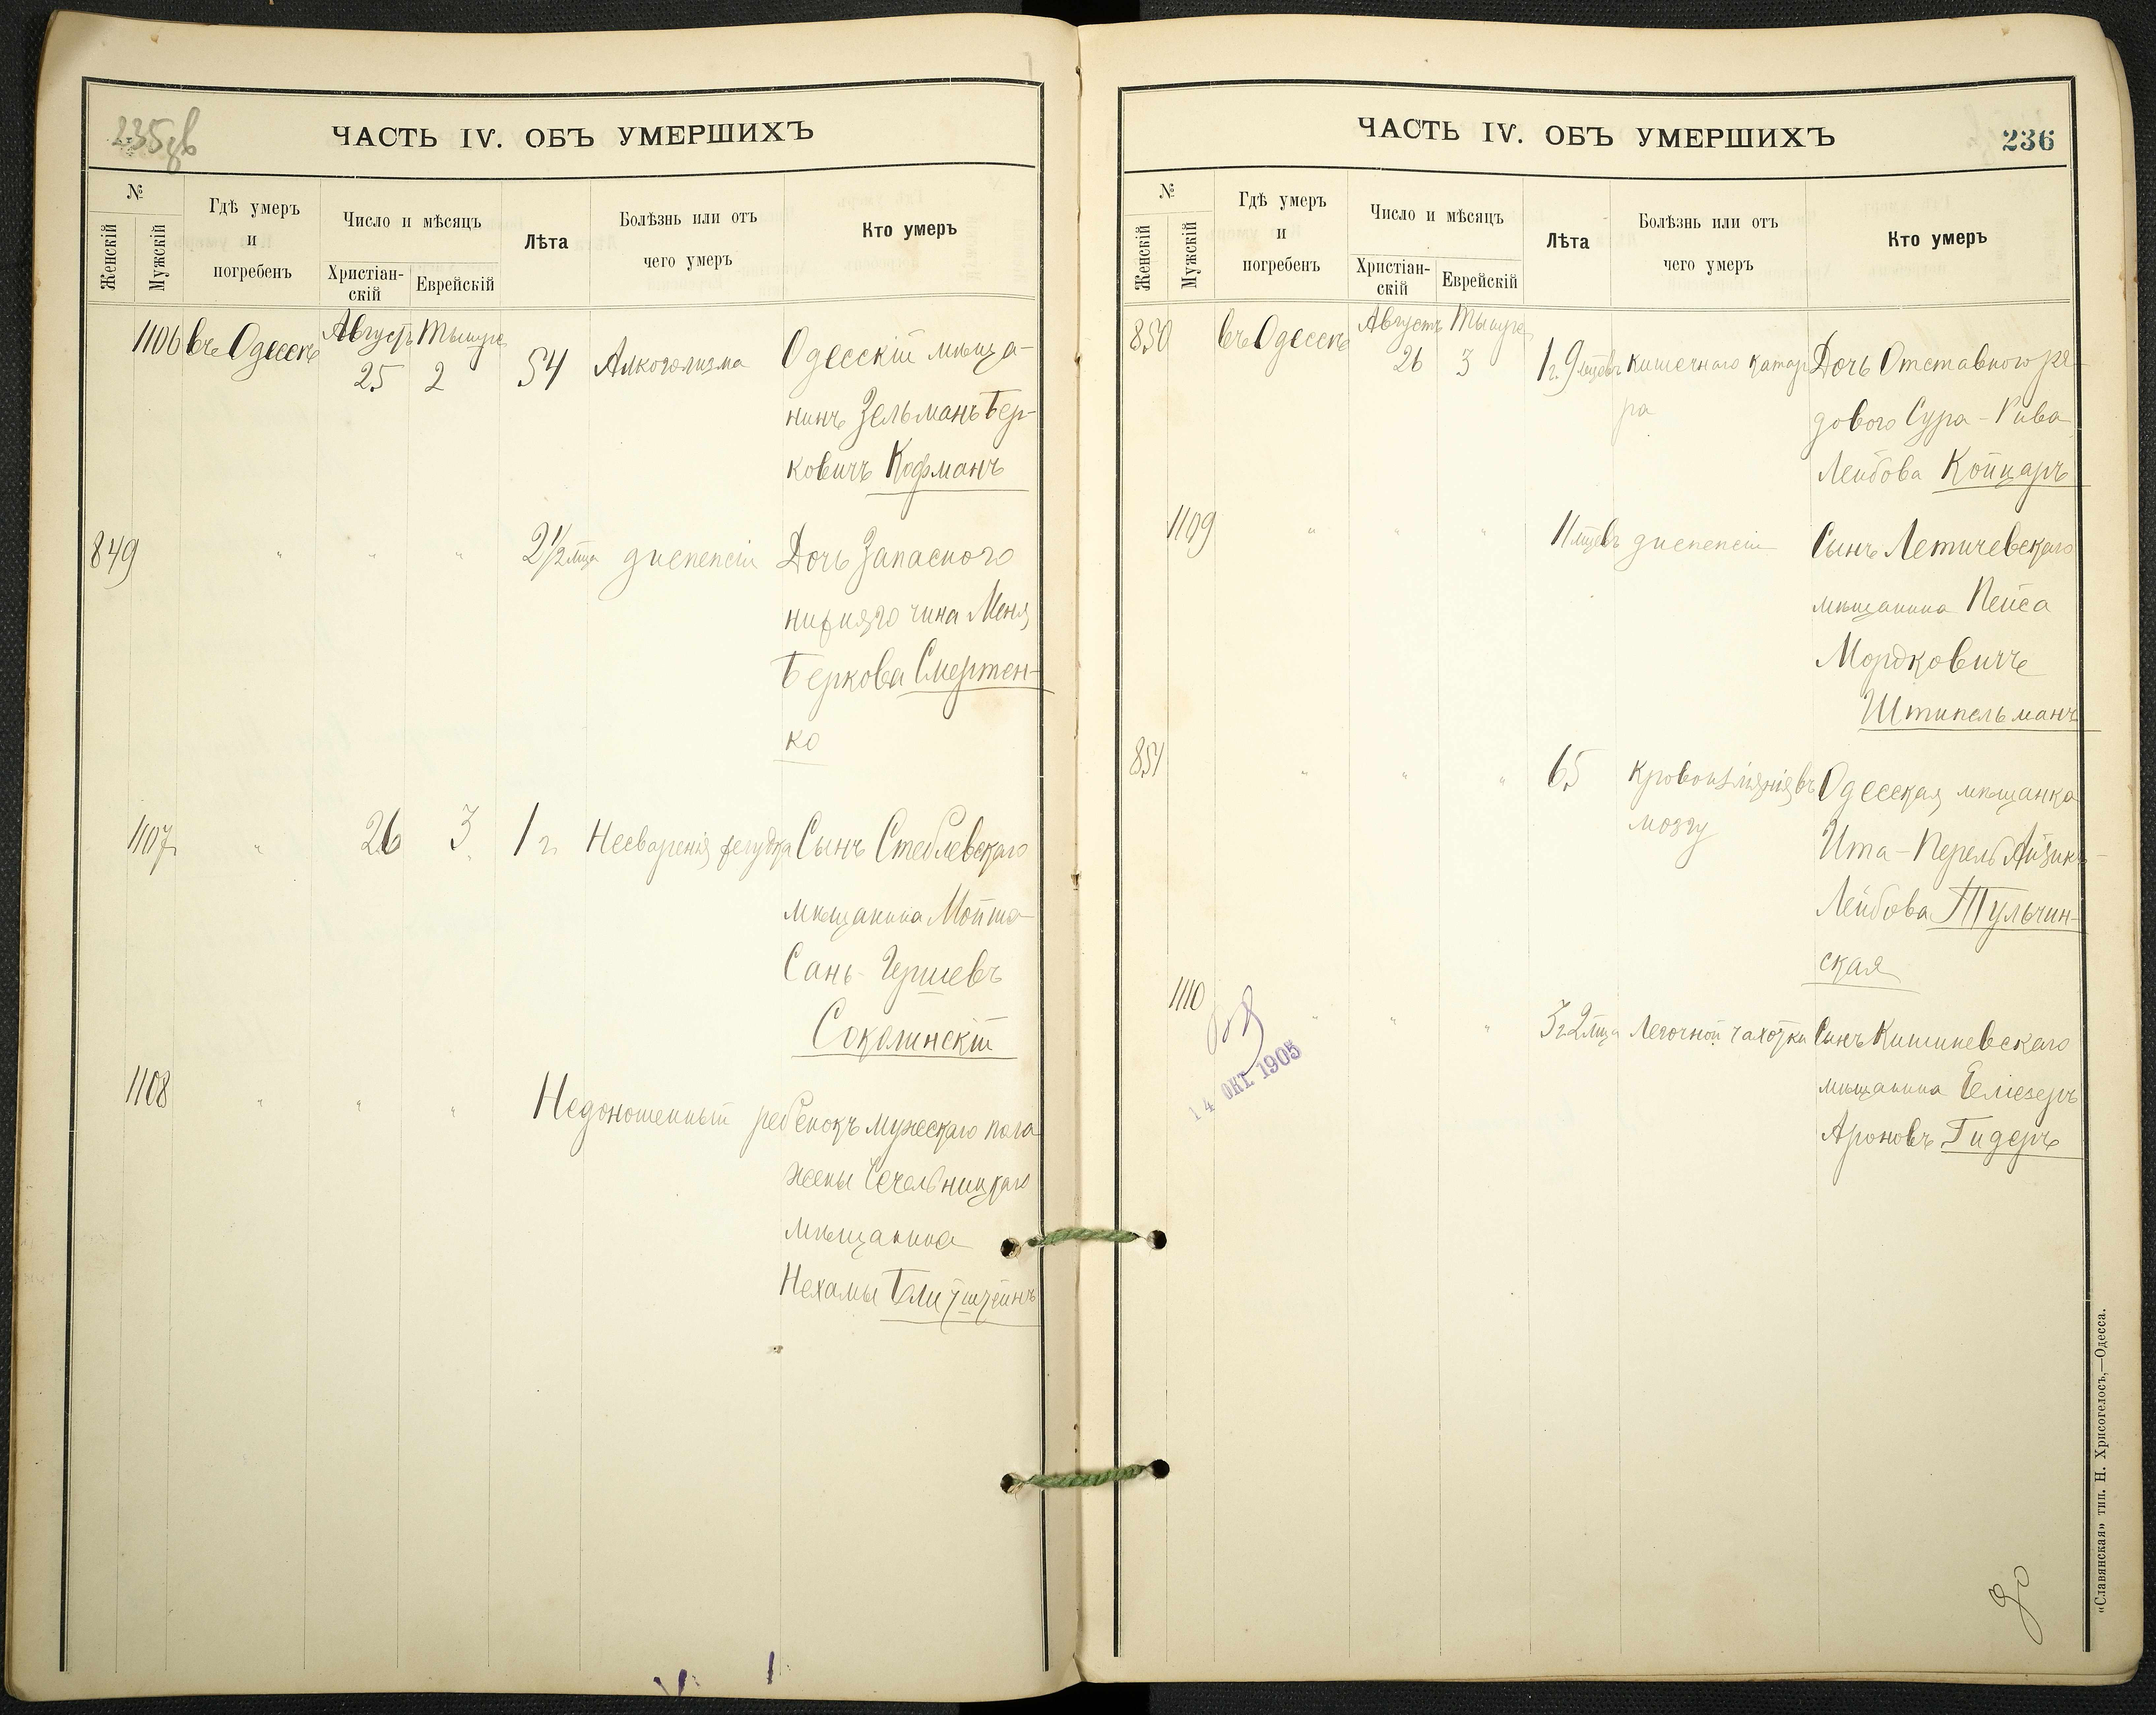 235об
ЧАСТЬ IV. ОБЪ УМЕРШИХЪ
№
Женскій
Мужскій
Гдѣ умеръ
и
погребенъ
Число и мѣсяцъ
Христіан-
скій
Еврейскій
Лѣта
Болѣзнь или отъ
чего умеръ
Кто умеръ
1106 въ Одессѣ Августъ 25 Тышре 2 54 Алкоголизма Одесскій мѣща-
нинъ Зельманъ Бер-
ковичъ Кофманъ
849 " " " 2½ мца диспепсіи Дочь Запасного
нижняго чина Меня
Беркова Смертен-
ко
1107 " 26 3 1 г. Несваренія желудка Сынъ Стеблевскаго
мѣщанина Мойше-
Сань Гершевъ
Соколинскій
1108 " " " Недоношенный ребенокъ мужескаго пола
жены Чечельницкаго
мѣщанина
Нехамы Голитштейнъ
ЧАСТЬ IV. ОБЪ УМЕРШИХЪ
236
№
Женскій
Мужскій
Гдѣ умеръ
и
погребенъ
Число и мѣсяцъ
Христіан-
скій
Еврейскій
Лѣта
Болѣзнь или отъ
чего умеръ
Кто умеръ
850 въ Одессѣ Августъ 26 Тышре 3 1 г. 9 мцевъ кишечнаго катар Дочь Отставного ря-
ра дового Сура-Рива
Лейбова Койцаръ
1109 " " " 11 мцевъ диспепсіи Сынъ Летичевскаго
мѣщанина Пейса
Мордковичъ
Штипельманъ
851 " " " 65 кровоизліянія въ Одесская мѣщанка
мозгу Ита-Перель Айзикъ-
Лейбова Тульчин-
ская
1110 " " " 3 г. 2 мца Легочной чахотки Сынъ Кишиневскаго
мѣщанина Еліезеръ
Ароновъ Гидеръ
14 ОКТ. 1905
«Славянская» тип. Н. Хрисогелосъ,—Одесса.